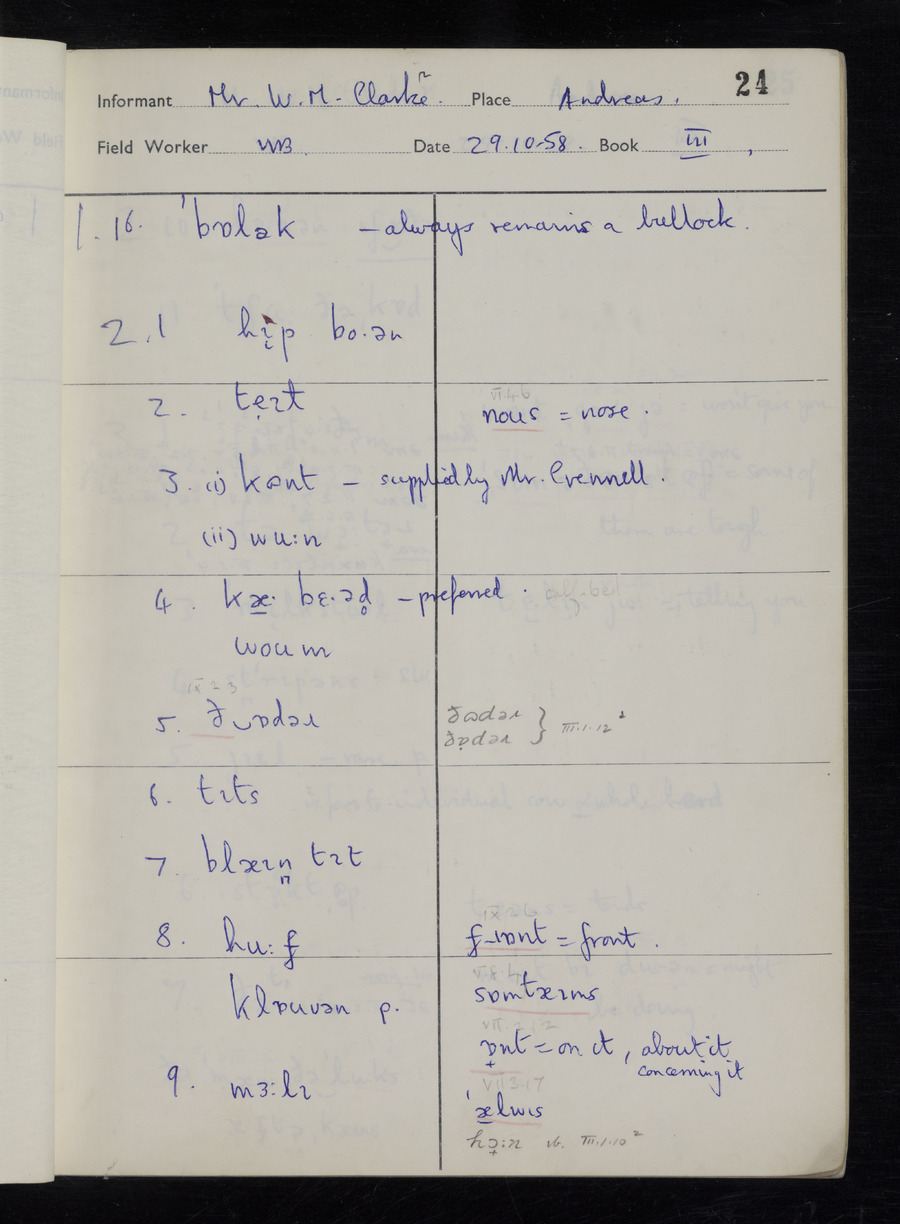 24
Informant Mr. W. M. Clarke². Place Andreas.
Field Worker MB. Date 29.10.58. Book III,
1.16. ˈbɒlək – always remains a bullock.
2.1 bo·ən
2. tẹɪt
VI.4.6
nous = nose.
3. (i) kənt – supplied by Mr. Crennell.
(ii) wu:n
4. kæ· bɛ·əd̥ – preferred.
woum
IX 2 3
5. ðɒdəɹ
ðɒdəɹ } III.1.12²
6. tɪts
7. blæɪn tɪt
IX 2 6
8. hu:f
fɹɒnt = front.
klɒuvən p.
VII.8.4
sɒmtæɪms
VII.2.12
ɒ̟nt = on it, about it
concerning it
9. mɜ:lɪ
VII 3.17
ˈælwɪs
hɔ̟:n ib. III.1.10²